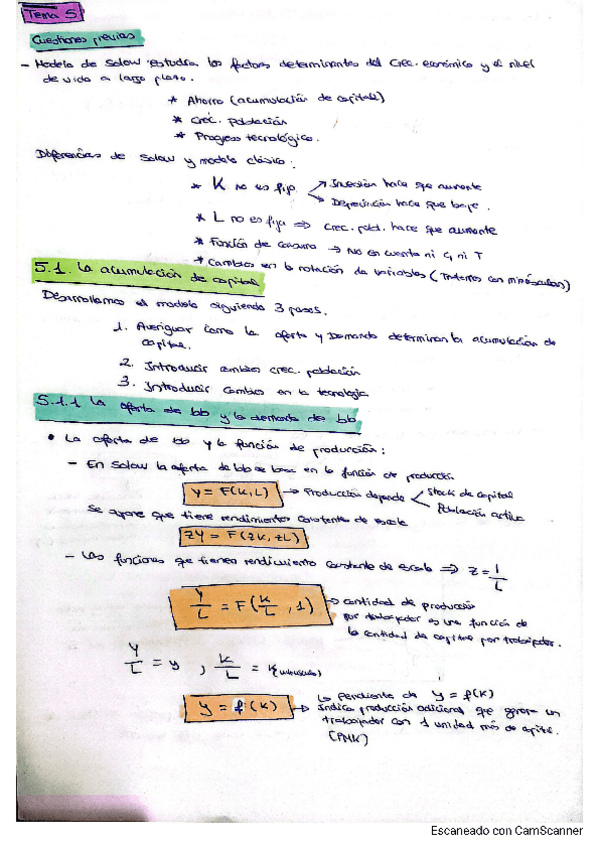 Tema 5
Cuestiones previas
- Modelo de Solow estudia los factores determinantes del Crec. económico y el nivel
de vida a largo plazo.
* Ahorro (acumulación de capital)
* Crec. población
* Progreso tecnológico.
Diferencias de Solow y modelo clásico:
* K no es fijo → Inversión hace que aumente
→ Depreciación hace que baje.
* L no es fija ⇒ Crec. pobl. hace que aumente
* Función de consumo → No en cuenta ni G ni T
* Cambios en la notación de variables (Tratamos con minúsculas)
5.1. La acumulación de capital
Desarrollamos el modelo siguiendo 3 pasos.
1. Averiguar como la oferta y Demanda determinan la acumulación de
capital.
2. Introducir cambios crec. población
3. Introducir Cambios en la tecnología
5.1.1 La oferta de bb y la demanda de bb
• La oferta de bb y la función de producción:
- En Solow la oferta de bb se basa en la función de producción
Y = F(K,L) → Producción depende Stock de capital
Población activa
Se supone que tiene rendimientos constantes de escala
ZY = F(ZK, ZL)
- Las funciones que tienen rendimiento constante de escala ⇒ Z = 1/L
Y/L = F(K/L, 1) → cantidad de producción
por trabajador es una función de
la cantidad de capital por trabajador.
Y/L = y , K/L = k (minúscula)
y = f(k) ↳ Pendiente de y = f(k)
Indica producción adicional que genera un
trabajador con 1 unidad más de capital.
(PMK)
Escaneado con CamScanner